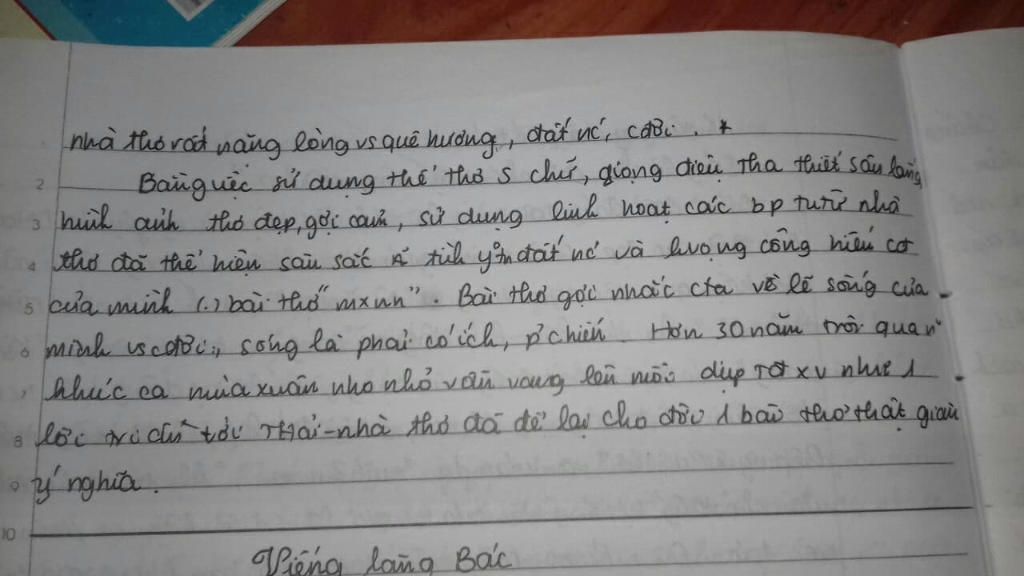 nhà thơ rất nặng lòng vs quê hương, đất nc, cđời. *
2 Bằng việc sử dụng thể thơ 5 chữ, giọng điệu tha thiết sâu lắng
3 hình ảnh thơ đẹp, gợi cảm, sử dụng linh hoạt các bp tu từ nhà
4 thơ đã thể hiện sâu sắc tình đất nc và lượng cống hiến
5 của mình (.) bài thơ "mxnn". Bài thơ gợi nhắc cta về lẽ sống của
6 mình vs cđời, sống là phải có ích, Hơn 30 năm trôi qua
7 khúc ca mùa xuân nho nhỏ vẫn vang lên mỗi dịp xv như 1
8 lời tới Thải - nhà thơ đã để lại cho đời 1 bài thơ thật giàu
9 ý nghĩa.
10
Viếng lăng Bác